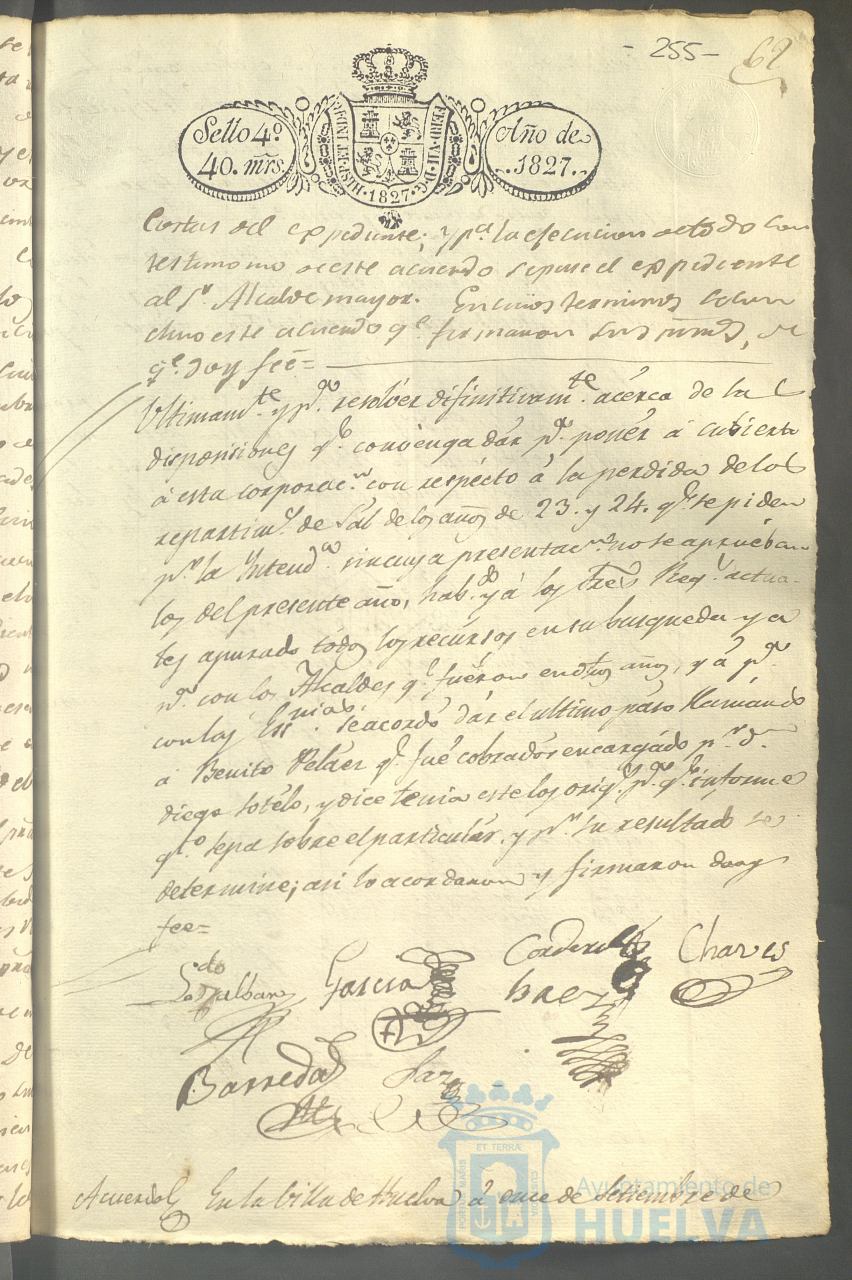 - 255 -
62
Sello 4º
40. mrs.
HISP. ET IND. R.
FERD. VII. D. G.
1827
Año de
1827.
Costas del expediente; y pª la efecucion de todo con
testimonio de este acuerdo se pase el expediente
al Sr. Alcalde mayor. En cuios terminos se con
cluio este acuerdo qe. firmaron sus mrds, de
qe. doy feé=
Ultimamte. y pª. resolver difinitivamte. acérca de las
disposiciones qe. convenga dár pª. ponér á cubierto
á esta corporacn. con respécto á la perdida de los
repartimtos. de Sál de los años de 23. y 24. qe. se piden
pr. la Intenda. sin cuya presentacn. no se aprueban
los del presente año, habdo. yá los Sres. Reqs. actua-
les apurado todos los recúrsos en su busqueda y a
pr. con los Alcaldes qe. fuéron en dhos años, y á pr.
con las se acordó dár el ultimo páso llamándo
á Benito Peláez qe. fué cobradór encargádo pr. Dn.
diego Sotélo, y dice tenia este los orig. pª. qe. informe
qto. sepa sobre el particulár, y pr. su resultado se
determine; asi lo acordaron y firmaron doy
fee=
Ldo. Galban
Garcia
Cordero
Chaves
Baez
Barreda
Paz
Acuerdo
En la Villa de Huelva á once de Setiembre de
ET TERRÆ
PORTUS MARIS
CUSTODIA
Ayuntamiento de
HUELVA